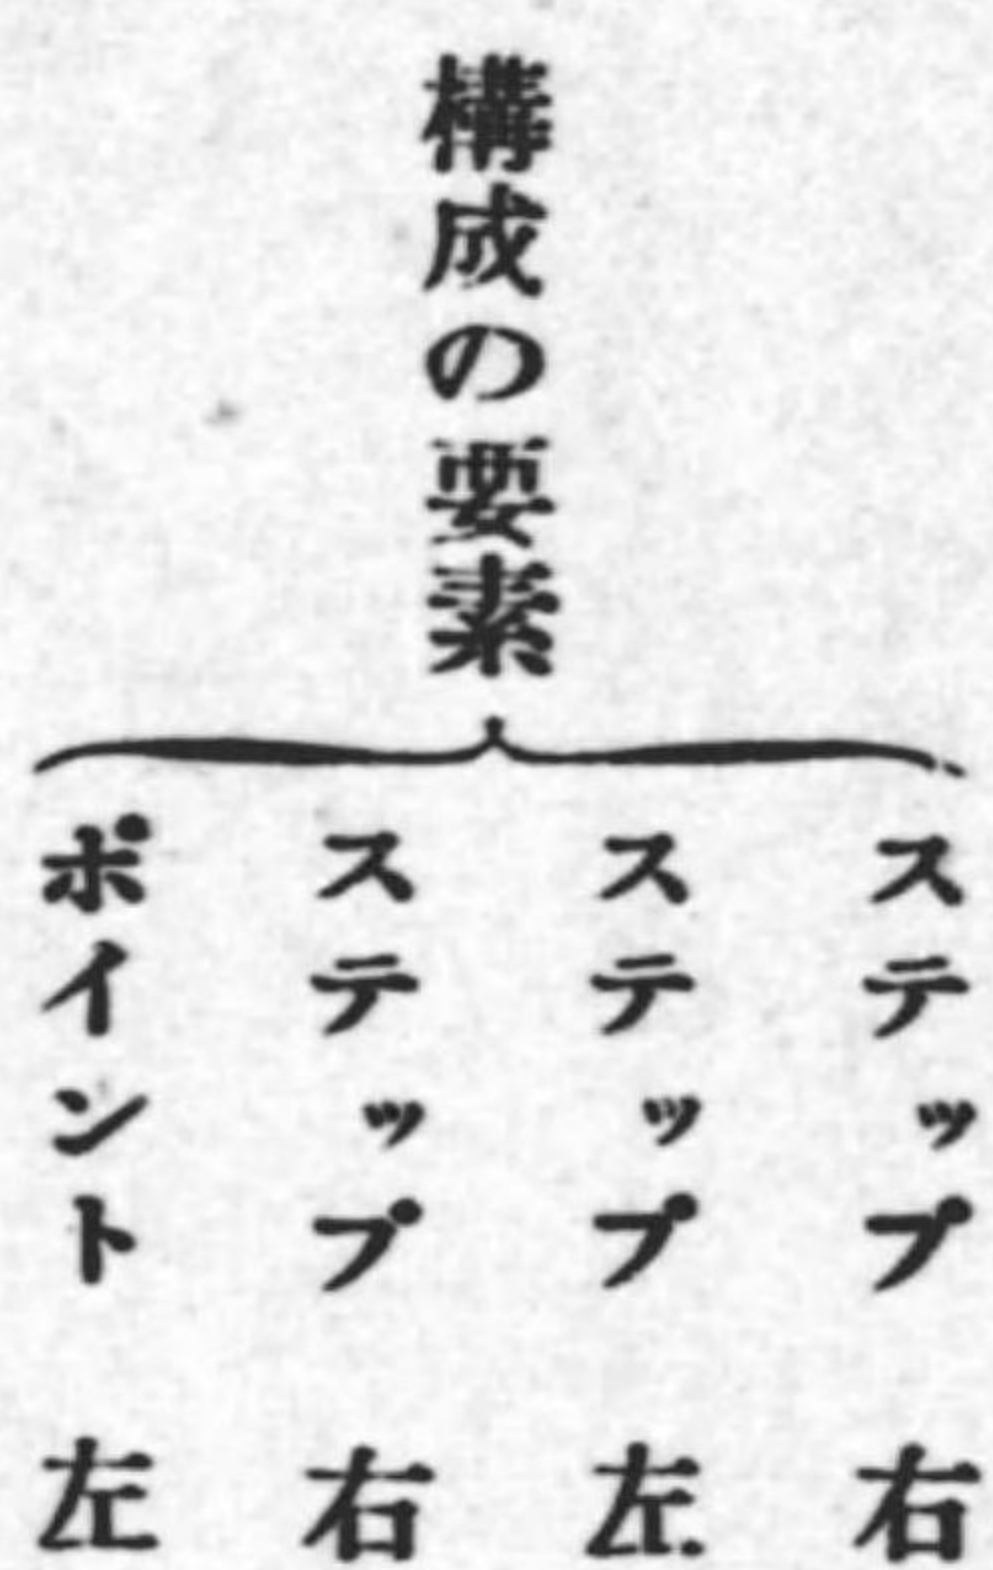 構成の要素
ステップ 右
ステップ 左
ステップ 右
ポイント 左